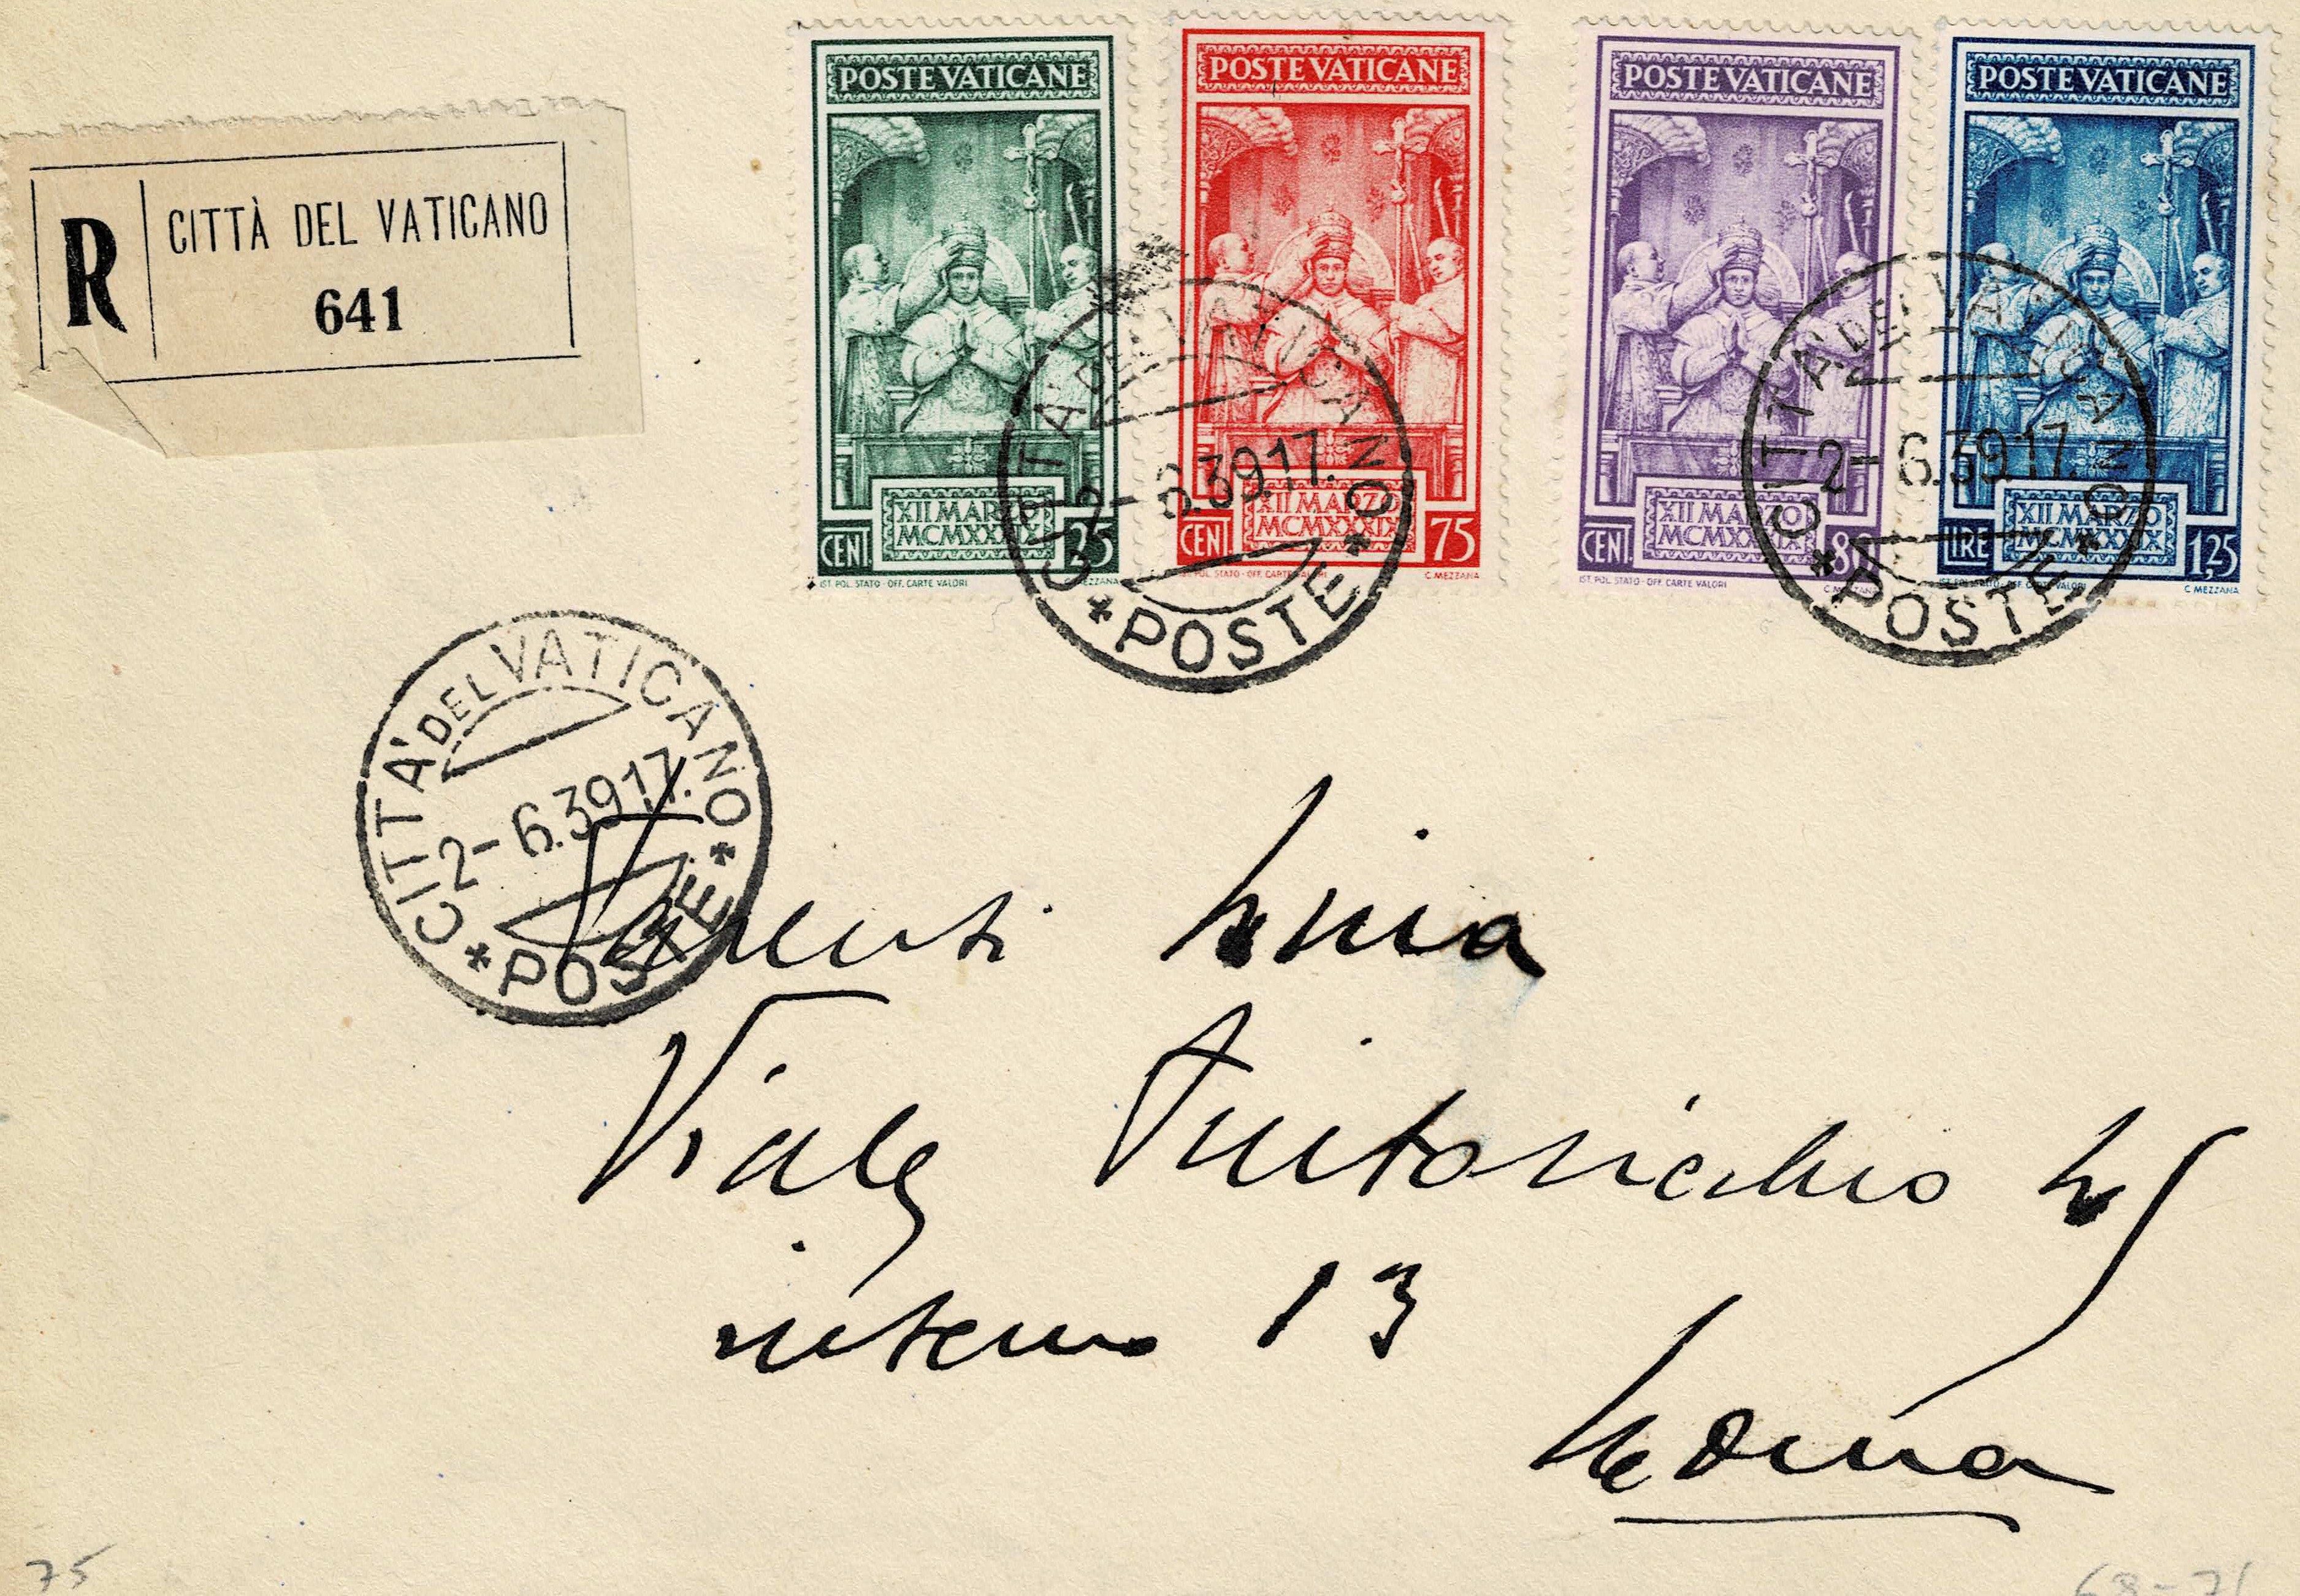 POSTE VATICANE
XII MARZO
MCMXXXIX
CENT. 25
IST. POL. STATO - OFF. CARTE VALORI C. MEZZANA
POSTE VATICANE
XII MARZO
MCMXXXIX
CENT. 75
IST. POL. STATO - OFF. CARTE VALORI C. MEZZANA
POSTE VATICANE
XII MARZO
MCMXXXIX
CENT. 80
IST. POL. STATO - OFF. CARTE VALORI C. MEZZANA
POSTE VATICANE
XII MARZO
MCMXXXIX
LIRE 1,25
IST. POL. STATO - OFF. CARTE VALORI C. MEZZANA
R CITTÀ DEL VATICANO
641
CITTA' DEL VATICANO
2-6.39.17.
* POSTE *
CITTA' DEL VATICANO
2-6.39.17.
* POSTE *
CITTA' DEL VATICANO
2-6.39.17.
* POSTE *
Viale
interno 13
75
68-71